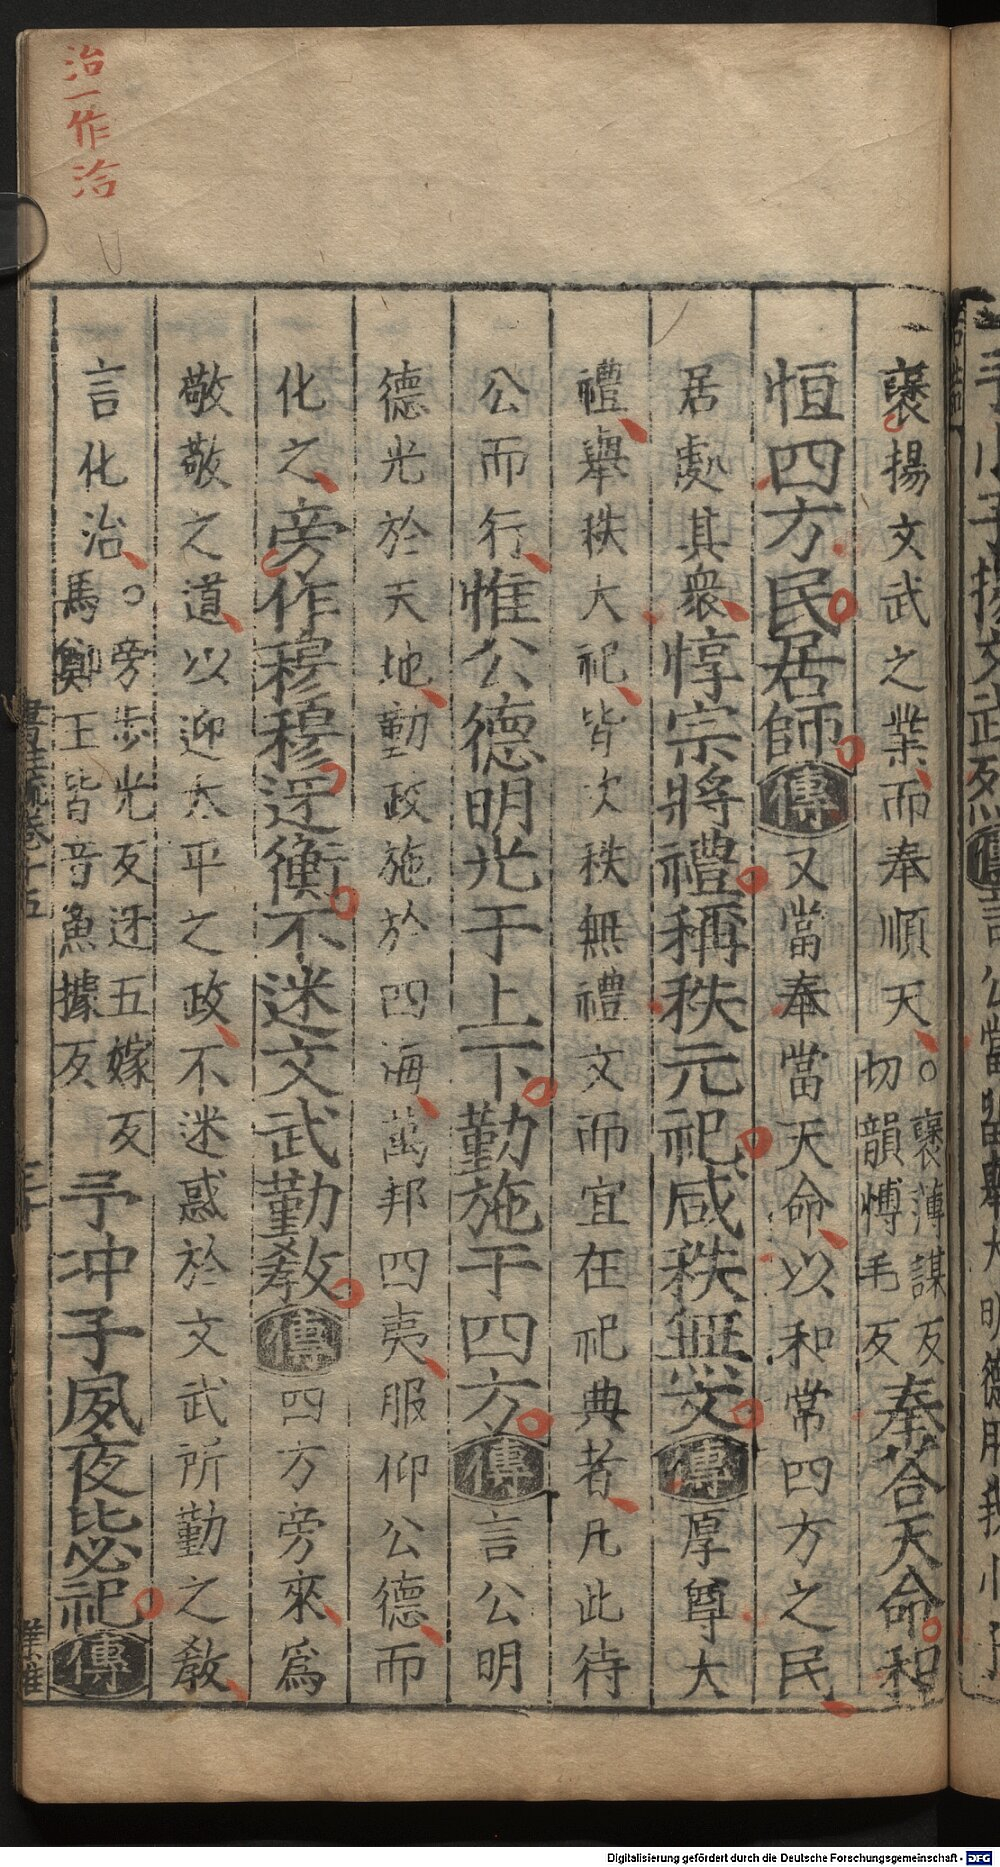 治一作洽
襃揚文武之業而奉順天○襃薄謀反切韻愽毛反奉荅天命和
恒四方民居師傳又當奉當天命以和常四方之民
居處其衆惇宗將禮稱秩元祀咸秩無文傳厚尊大
禮舉秩大祀皆次秩無禮文而宜在祀典者凡此待
公而行惟公德明光于上下勤施于四方傳言公明
德光於天地勤政施於四海萬邦四夷服仰公德而
化之旁作穆穆迓衡不迷文武勤教傳四方旁來爲
敬敬之道以迎太平之政不迷惑於文武所勤之教
言化治○旁步光反迓五嫁反馬鄭王皆音魚據反予冲子夙夜毖祀傳
書疏卷十五
Digitalisierung gefördert durch die Deutsche Forschungsgemeinschaft - DFG